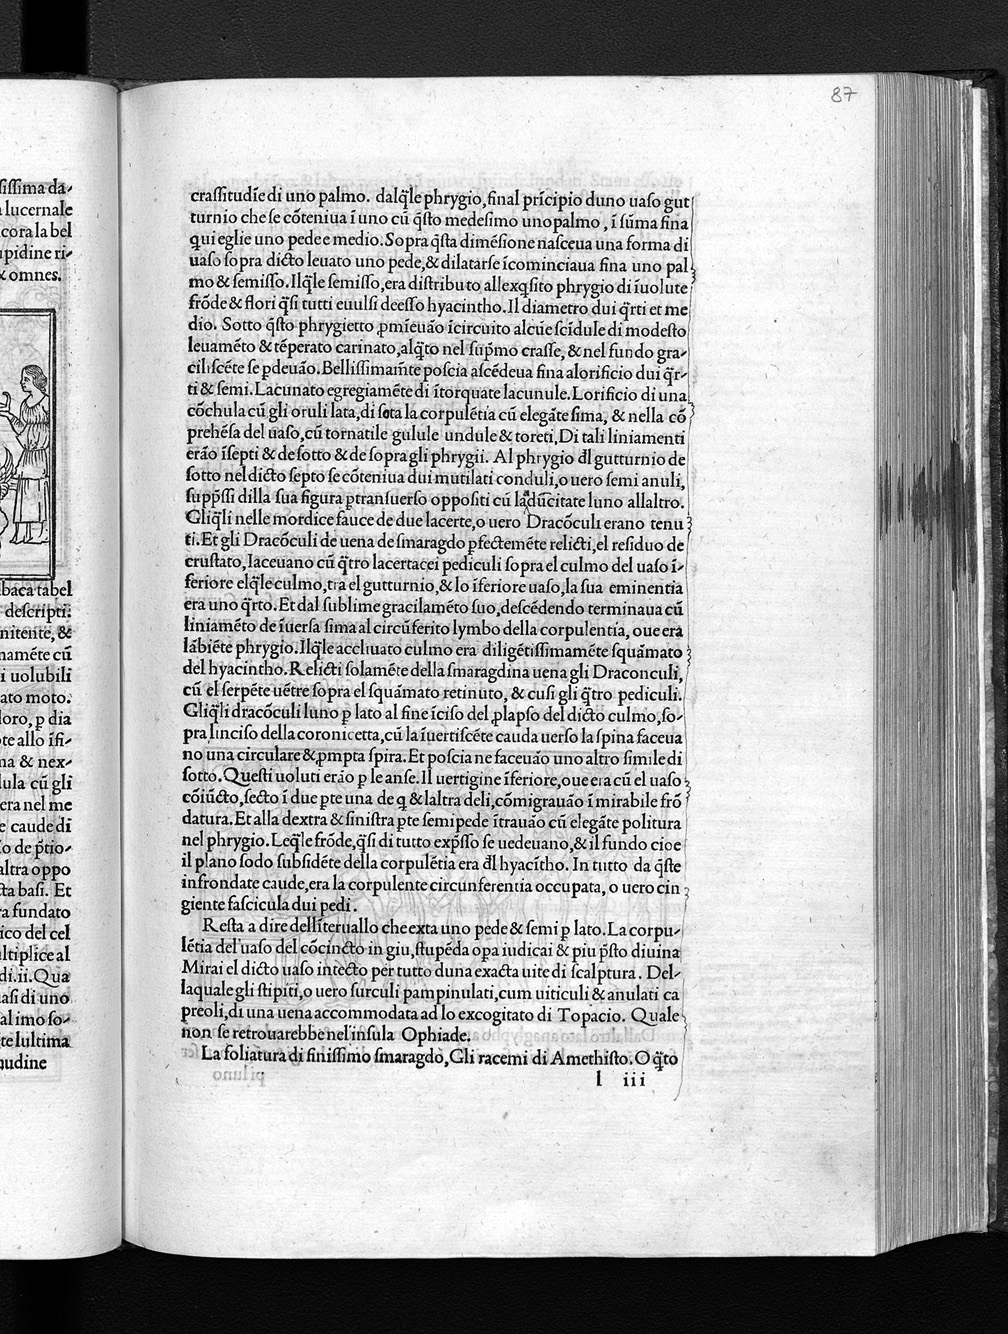 87
sissima da-
a lucernale
cora la bel
upidine ri-
& omnes.
baca tabel
descripti.
nitente, &
naméte cū
i uolubili
ato moto.
loro, p dia
te allo ĩfi-
na & nex-
lula cū gli
era nel me
e caude di
o de p̃tio-
altra oppo
cta basi. Et
ra fundato
ico del cel
ultiplice al
di.ii. Qua
asi di uno
al imo so-
te lultima
nudine
crassitudĩe di uno palmo. dalq̃le phrygio, final prĩcipio duno uaso gut
turnio che se cõteniua ĩ uno cũ q̃sto medesimo uno palmo, ĩ sũma fina
qui eglie uno pede e medio. Sopra q̃sta dimẽsione nasceua una forma di
uaso sopra dicto leuato uno pede, & dilatarse ĩcominciaua fina uno pal
mo & semisso. Ilq̃le semisso, era distributo allexq̃sito phrygio di ĩuolute
frõde & flori q̃si tutti euulsi de esso hyacintho. Il diametro dui q̃rti et me
dio. Sotto q̃sto phrygietto ꝓmĩeuão ĩcircuito alcũe scĩdule di modesto
leuamẽto & tẽperato carinato, alq̃to nel sup̃mo crasse, & nel fundo gra-
ciliscẽte se pdeuão. Bellissimam̃te poscia ascẽdeua fina alorificio dui q̃r-
ti & semi. Lacunato egregiamẽte di ĩtorquate lacunule. Lorificio di una
cõchula cũ gli oruli lata, di sota la corpulẽtia cũ elegãte sima, & nella cõ
prehẽsa del uaso, cũ tornatile gulule undule & toreti, Di tali liniamenti
erão ĩsepti & de sotto & de sopra gli phrygii. Al phrygio dl gutturnio de
sotto nel dicto septo se cõteniua dui mutilati conduli, o uero semi anuli,
supp̃ssi dilla sua figura ptransuerso oppositi cũ la dũcitate luno allaltro.
Gliq̃li nelle mordice fauce de due lacerte, o uero Dracõculi erano tenu
ti. Et gli Dracõculi de uena de smaragdo pfectemẽte relicti, el residuo de
crustato, Iaceuano cũ q̃tro lacertacei pediculi sopra el culmo del uaso ĩ-
feriore elq̃le culmo, tra el gutturnio, & lo ĩferiore uaso, la sua eminentia
era uno q̃rto. Et dal sublime gracilamẽto suo, descẽdendo terminaua cũ
liniamẽto de ĩuersa sima al circũferito lymbo della corpulentia, oue era
lãbiẽte phrygio. Ilq̃le accliuato culmo era diligẽtissimamẽte squãmato
del hyacintho. Relicti solamẽte della smaragdina uena gli Draconculi,
cũ el serpẽte uẽtre sopra el squãmato retinuto, & cusi gli q̃tro pediculi.
Gliq̃li dracõculi luno p lato al fine ĩciso del ꝓlapso del dicto culmo, so-
pra linciso della coronicetta, cũ la ĩuertiscẽte cauda uerso la spina faceua
no una circulare & ꝓmpta spira. Et poscia ne faceuão uno altro simile di
sotto. Questi uoluti erão p le anse. Il uertigine ĩferiore, oue era cũ el uaso
cõiũcto, secto ĩ due pte una de q & laltra deli, cõmigrauão ĩ mirabile frõ
datura. Et alla dextra & sinistra pte semipede ĩtrauão cũ elegãte politura
nel phrygio. Leq̃le frõde, q̃si di tutto exp̃sso se uedeuano, & il fundo cioe
il plano sodo subsidẽte della corpulẽtia era dl hyacĩtho. In tutto da q̃ste
infrondate caude, era la corpulente circunferentia occupata, o uero cin
giente fascicula dui pedi.
Resta a dire dellĩteruallo che exta uno pede & semi p lato. La corpu-
lẽtia del uaso del cõcincto in giu, stupẽda opa iudicai & piu p̃sto diuina
Mirai el dicto uaso intecto per tutto duna exacta uite di scalptura. Del-
laquale gli stipiti, o uero surculi pampinulati, cum uiticuli & anulati ca
preoli, di una uena accommodata ad lo excogitato di Topacio. Quale
non se retrouarebbe nel insula Ophiade.
La foliatura di finissimo smaragdo, Gli racemi di Amethisto. O q̃to
l iii